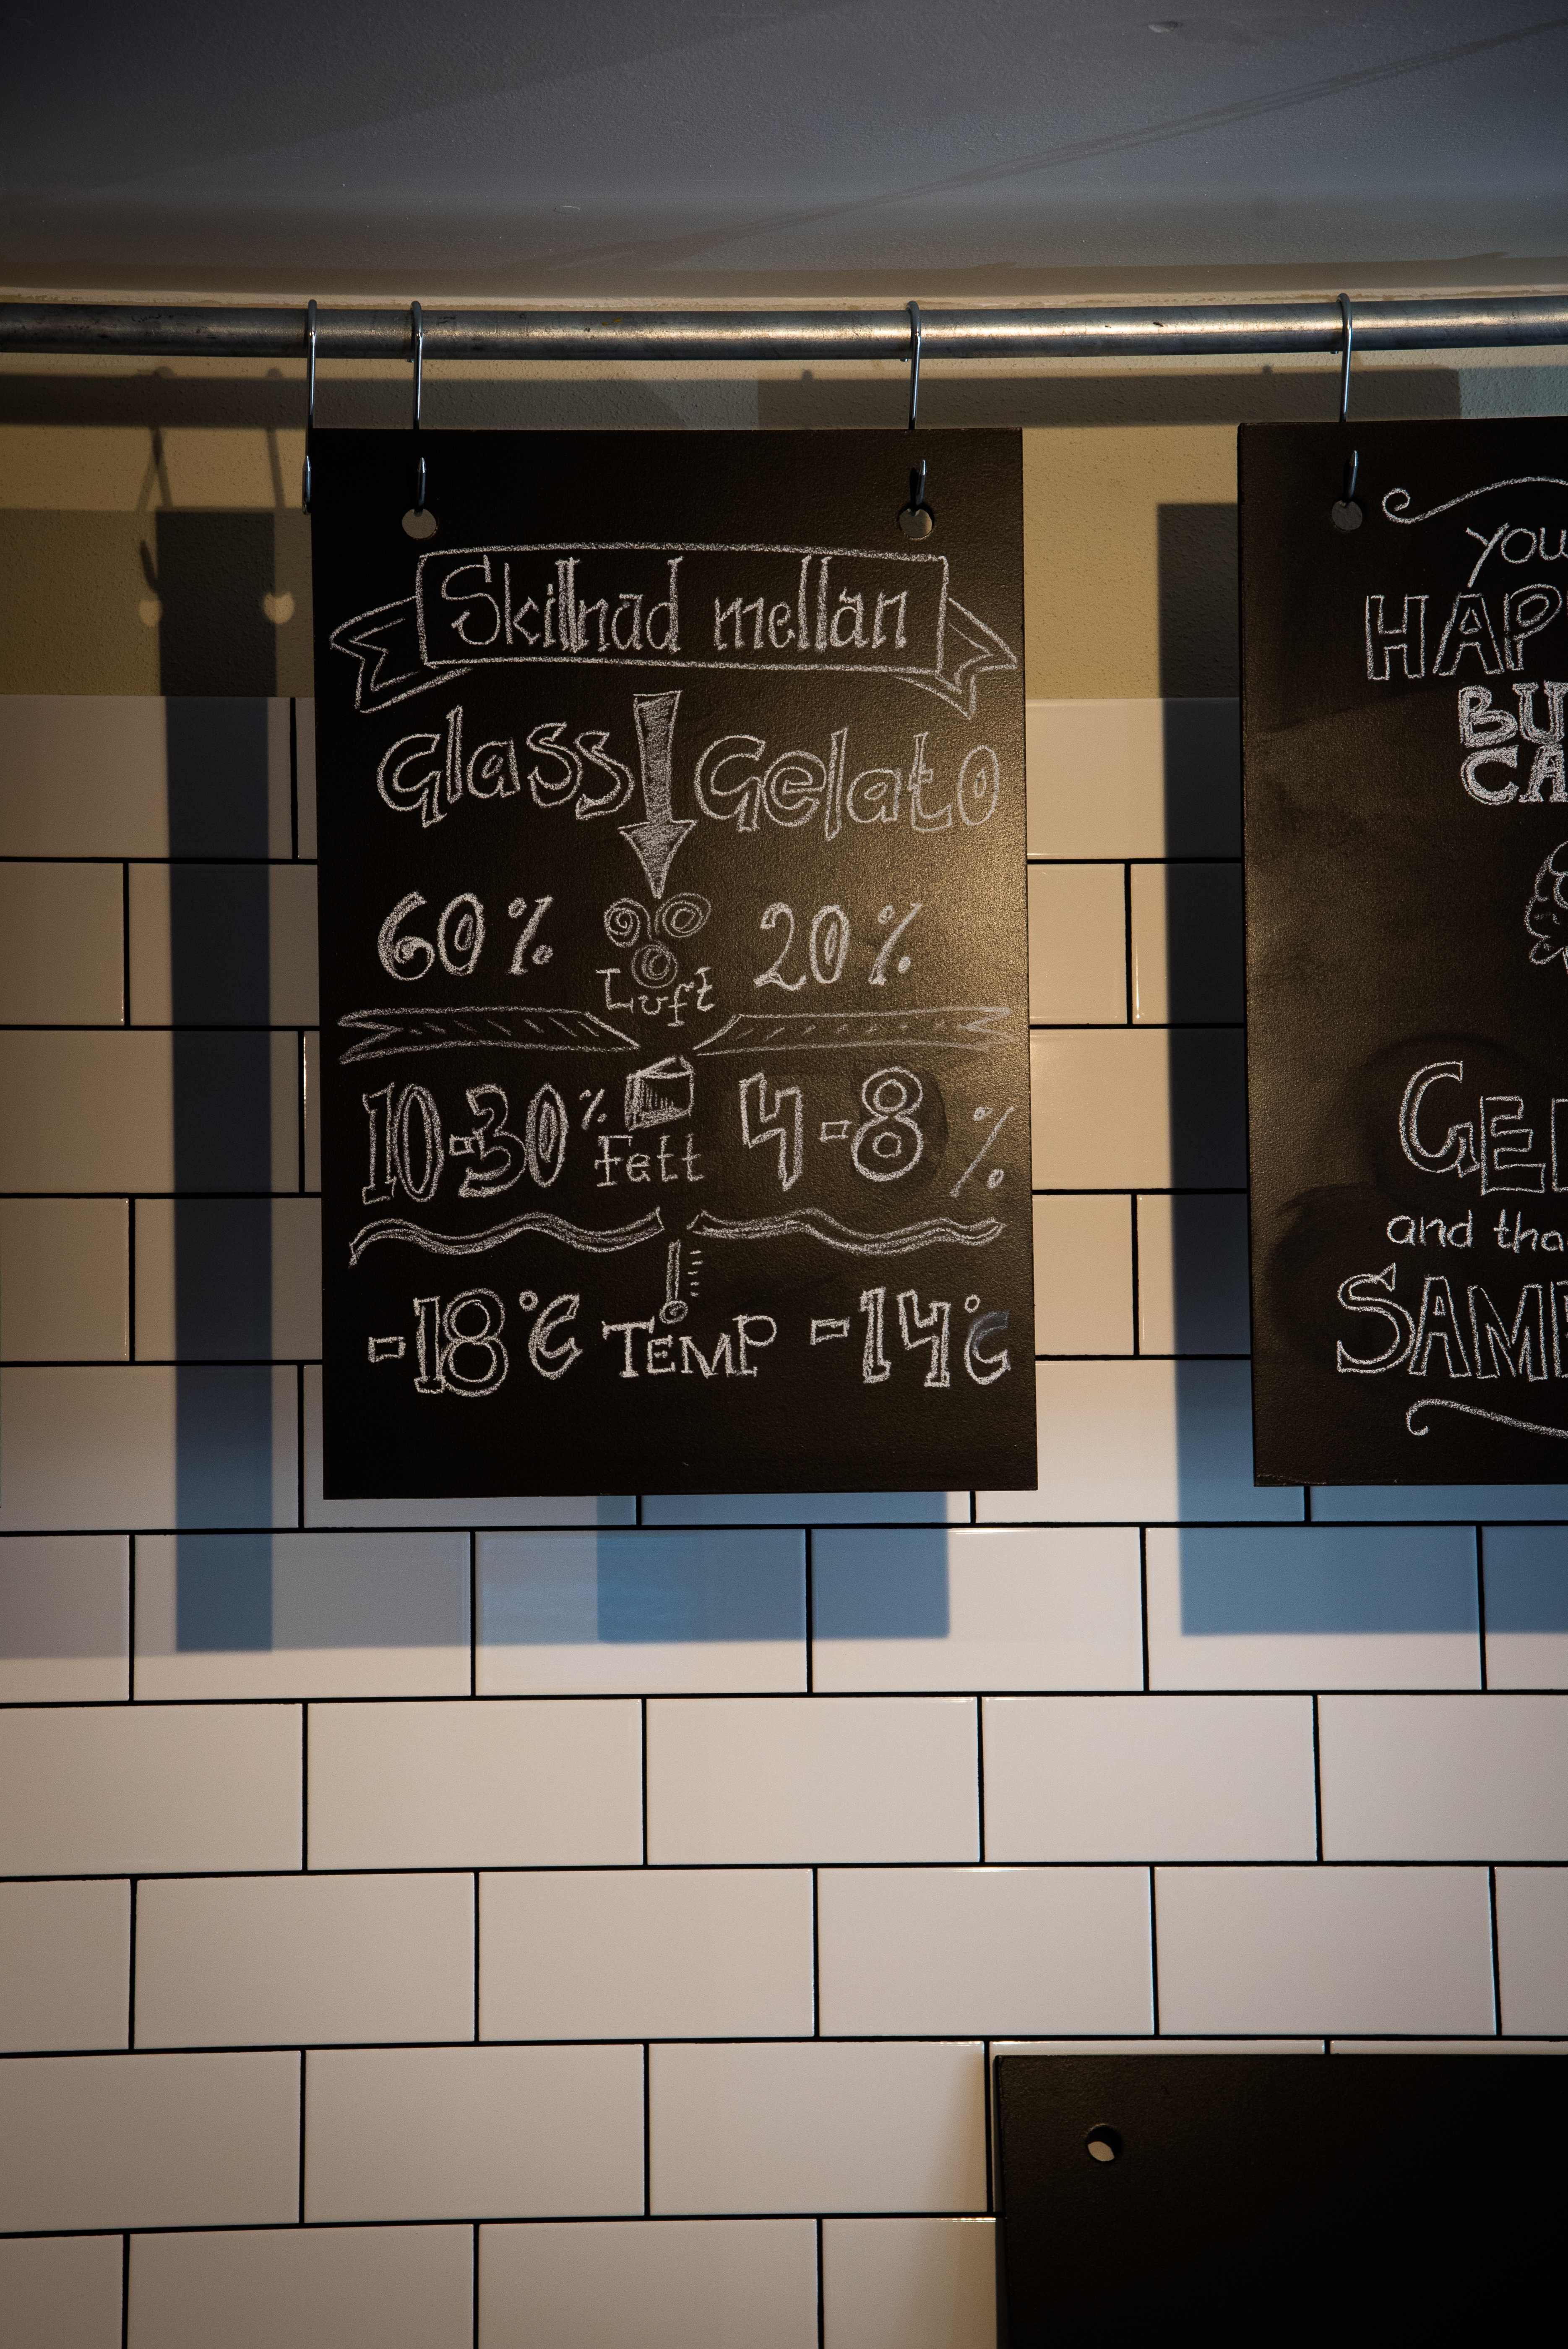 Skillnad mellan
Glass Gelato
60% 20%
Luft
10-30% 4-8%
Fett
-18°C TEMP -14°C
you
HAP
BU
CA
GEL
and tha
SAME